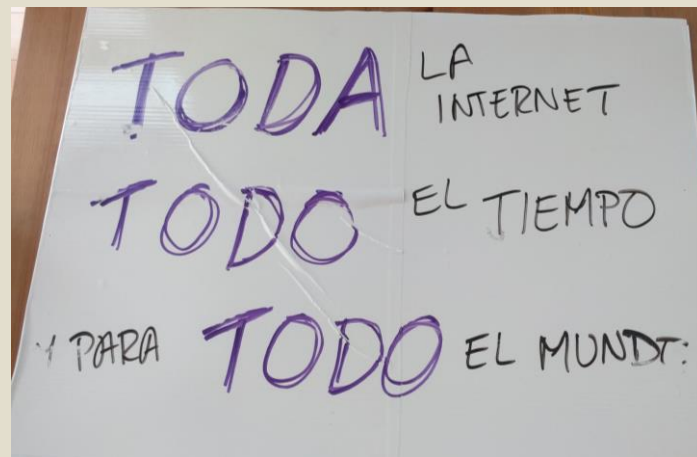 TODA LA INTERNET
TODO EL TIEMPO
Y PARA TODO EL MUNDO